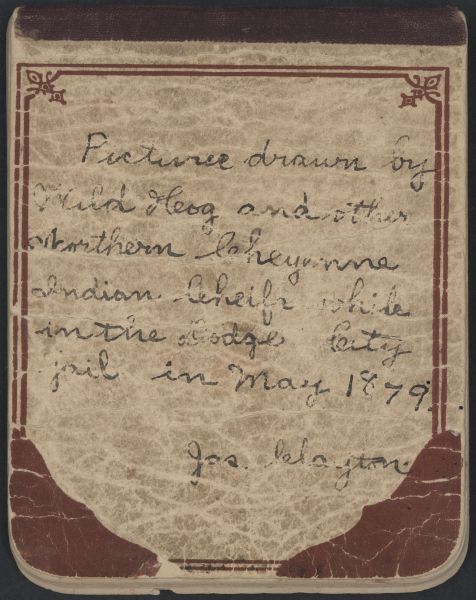 Pictures drawn by
Wild Hog and other
Northern Cheyenne
Indian Cheifs while
in the Dodge City
jail in May 1879.
Jos. Clayton.